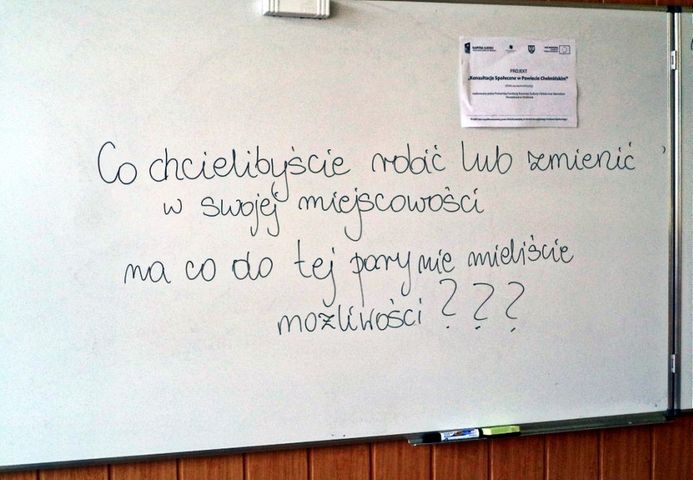 PROJEKT
„Konsultacje Społeczne w Powiecie Chełmińskim"
Co chcielibyście robić lub zmienić
w swojej miejscowości
na co do tej pory nie mieliście
możliwości ? ? ?